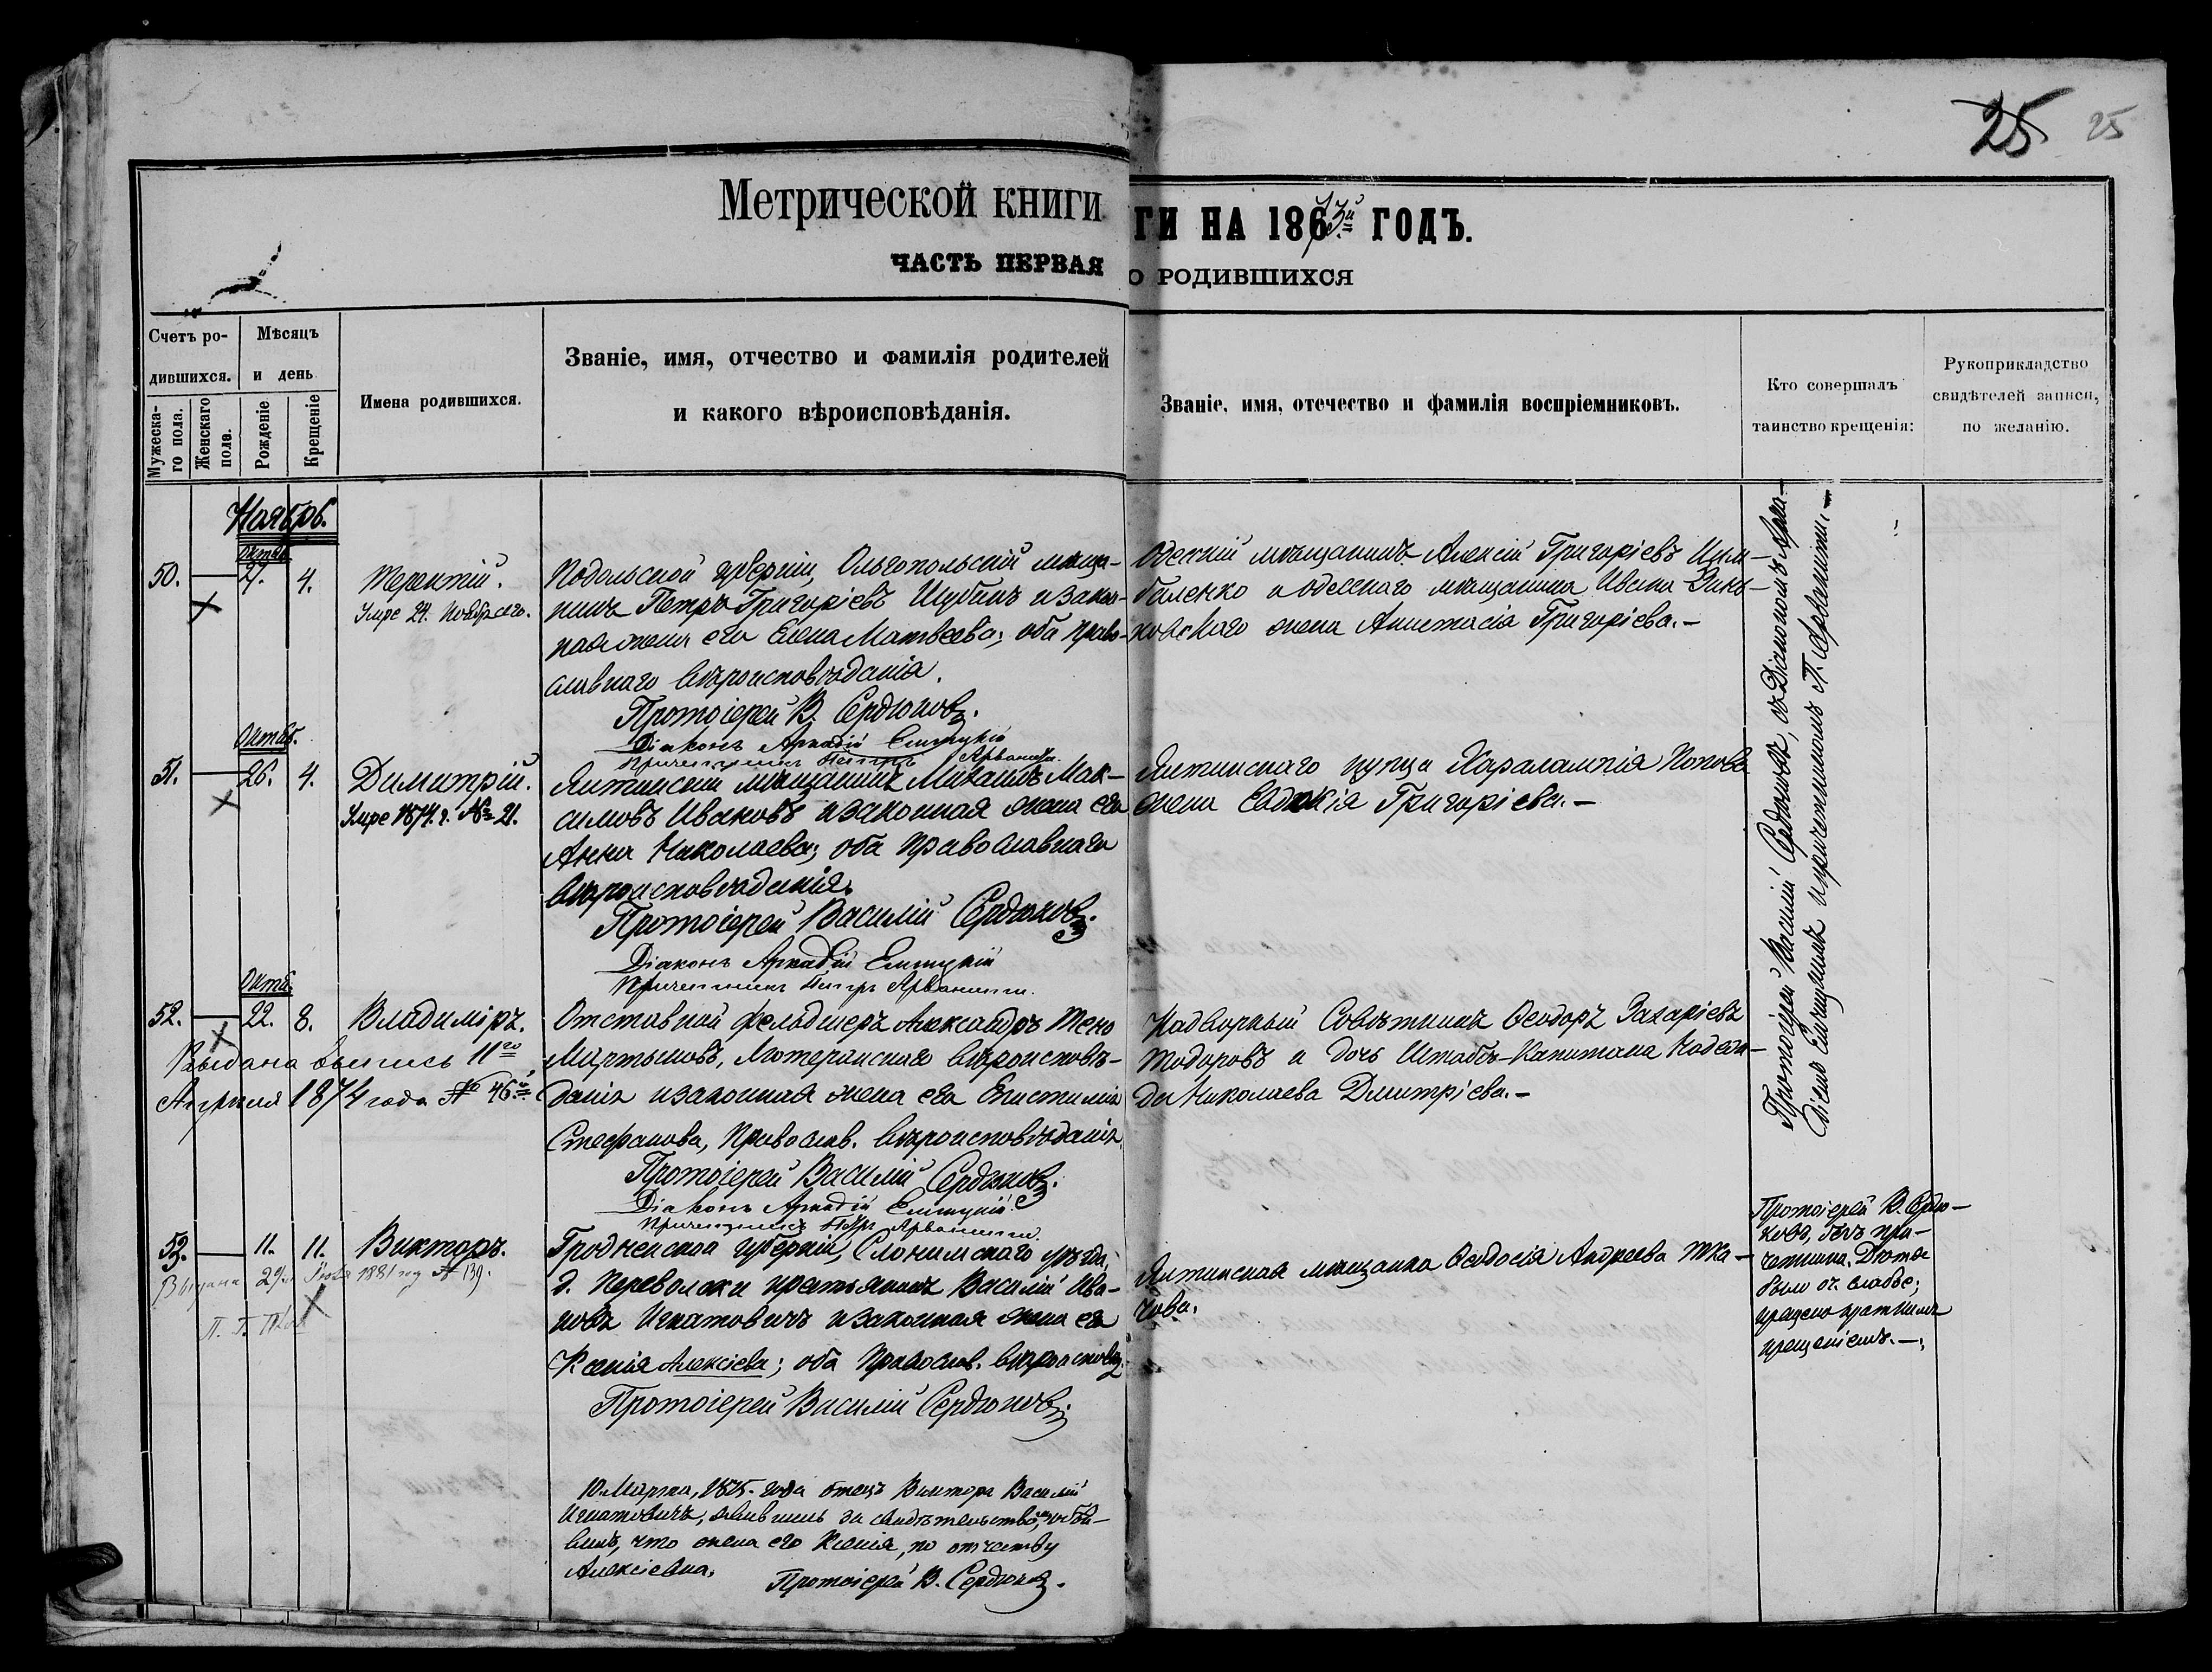 25 25
Метрической книги
ГИ НА 1873й ГОДЪ.
ЧАСТЬ ПЕРВАЯ
О РОДИВШИХСЯ
Счетъ ро-
дившихся.
Мужеска-
го пола.
Женскаго
пола.
Мѣсяцъ
и день
Рожденіе
Крещеніе
Имена родившихся.
Званіе, имя, отчество и фамилія родителей
и какого вѣроисповѣданія.
Званіе, имя, отечество и фамилія воспріемниковъ.
Кто совершалъ
таинство крещенія:
Рукоприкладство
свидѣтелей записи,
по желанію.
Ноябрь.
Октяб.
50. 27. 4. Терентій.
Умре 24. Ноября сего.
Подольской губерніи, Ольгопольскій мѣща-
нинъ Петръ Григоріевъ Шубинъ и закон-
ная жена его Елена Матвеева; оба право-
славнаго вѣроисповѣданія.
Протоіерей В. Сердюковъ.
Діаконъ Аркадій
Причетникъ Петръ
Одесскій мѣщанинъ Алексій Григоріевъ Цым-
баленко и одесскаго мѣщанина Ивана Зинь-
ковскаго жена Анастасія Григоріева.-
Октяб.
51. 26. 4. Димитрій.
Умре 1874. г. № 21.
Ялтинскій мѣщанинъ Михаилъ Мак-
симовъ Ивановъ и законная жена его
Анна Николаева; оба православнаго
вѣроисповѣданія.
Протоіерей Василій Сердюковъ.
Діаконъ Аркадій
Причетникъ Петръ
Ялтинскаго купца Харалампія Попова
жена Евдокія Григоріева.-
Октяб.
52. 22. 8. Владиміръ.
Выдана выпись 11го
Апрѣля 1874 года № 46й
Отставной фельдшеръ Александръ
Мартыновъ, Лютеранскаго вѣроисповѣ-
данія и законная жена его
Стефанова, Православ. вѣроисповѣданія.
Протоіерей Василій Сердюковъ.
Діаконъ Аркадій
Причетникъ Петръ
Надворный Совѣтникъ Ѳеодоръ Захаріевъ
Тодоровъ и дочь Штабсъ-Капитана Надеж-
да Николаева Дмитріева.-
Протоіерей Василій Сердюковъ, съ Діакономъ Арка-
діемъ и причетникомъ П.
53. 11. 11. Викторъ.
Выдана 29 1881 год № 139.
Гродненской губерніи, Слонимскаго уѣзда,
д. Переволоки крестьянинъ Василій Ива-
новъ Игнатовичъ и законная жена его
Ксенія Алексіева; оба Православ. вѣроисповѣд.
Протоіерей Василій Сердюковъ.
Ялтинская мѣщанка Ѳеодосія Андреева Тка-
чова.
Протоіерей В. Сердю-
ковъ, безъ при-
четника. Дитя
было оч. слабое;
крещено краткимъ
крещеніемъ.-
10 Марта, 1875. года отецъ Виктора Василій
Игнатовичъ, явившись за свидѣтельствомъ, объя-
вилъ, что жена его Ксенія, по отчеству
Алексіевна.
Протоіерей В. Сердюковъ.